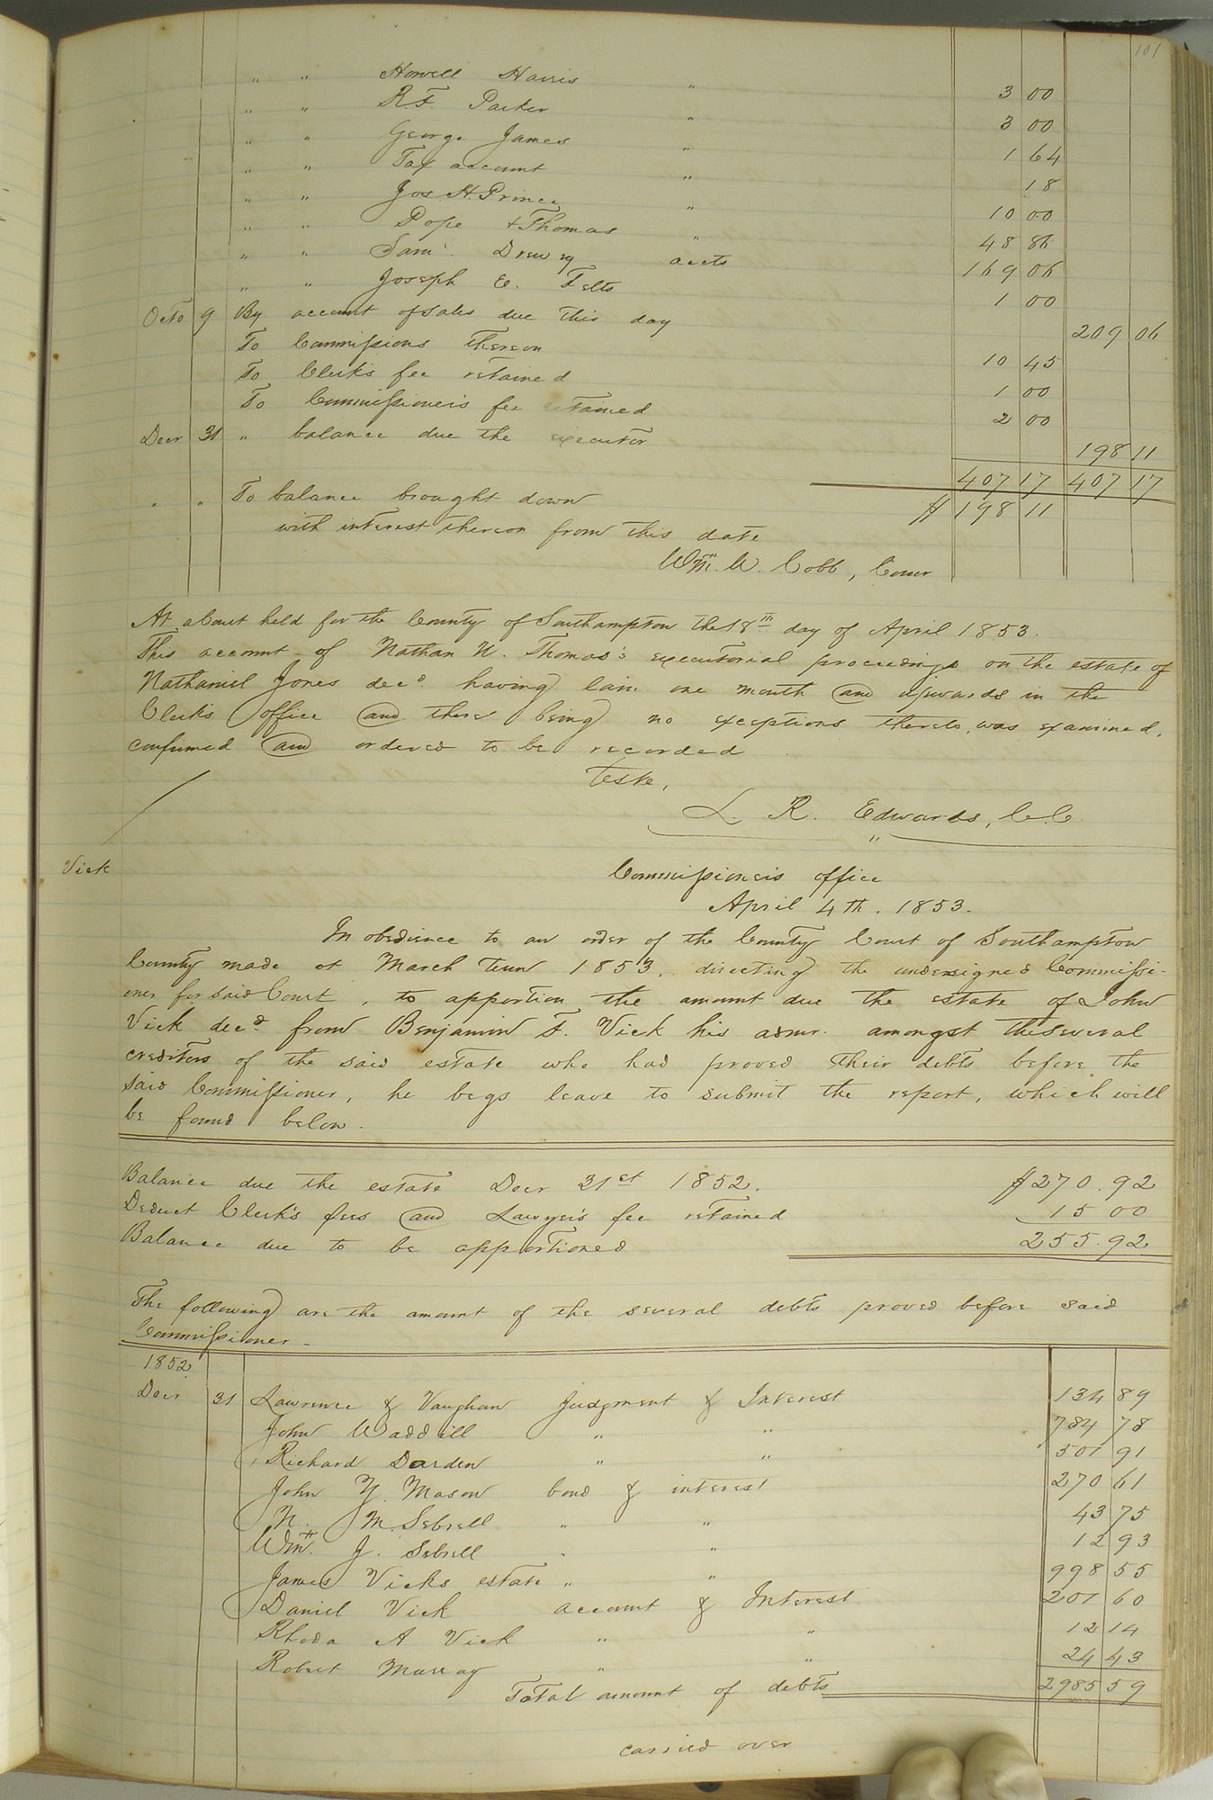 101
" " Howell Harris " 3 00
" " R. F. Parker " 3 00
" " George James " 1 64
" " Tax account " 18
" " Jos H. Prince " 10 00
" " Pope & Thomas " 48 86
" " Saml. Drewry accts 169 06
" " Joseph E. Felts 1 00
Octo 9 By account of sales due this day 209 06
To Commissions thereon 10 45
To Clerk's fee retained 1 00
To Commissioner's fee retained 2 00
Decr 31 " balance due the executor 198 11
407 17 407 17
" " To balance brought down $ 198 11
with interest thereon from this date
Wm. W. Cobb, Comr
At a Court held for the County of Southampton the 18th day of April 1853.
This account of Nathan W. Thomas's executorial proceedings on the estate of
Nathaniel Jones decd. having lain one month and upwards in the
Clerk's office and there being no exceptions thereto, was examined,
confirmed and ordered to be recorded
Teste,
L. R. Edwards, C.C.
Vick
Commissioners office
April 4th. 1853.
In obedience to an order of the County Court of Southampton
County made at March Term 1853, directing the undersigned Commissi-
oner for said Court, to apportion the amount due the estate of John
Vick decd from Benjamin F. Vick his admr. amongst the several
creditors of the said estate who had proved their debts before the
said Commissioner, he begs leave to submit the report, which will
be found below.
Balance due the estate Decr 31st 1852. $270.92
Deduct Clerk's fees and Lawyer's fee retained 15 00
Balance due to be apportioned 255.92
The following are the amount of the several debts proved before said
Commissioner.
1852
Decr 31 Lawrence & Vaughan Judgment & Interest 134 89
John Waddill " " 784 78
Richard Darden " " 501 91
John Y. Mason bond & interest 270 61
N. M. Sebrell " " 43 75
Wm. J. Sebrell " " 12 93
James Vicks estate " " 998 55
Daniel Vick account & Interest 201 60
Rhoda A Vick " " 12 14
Robert Murray " " 24 43
Total amount of debts 2985 59
carried over